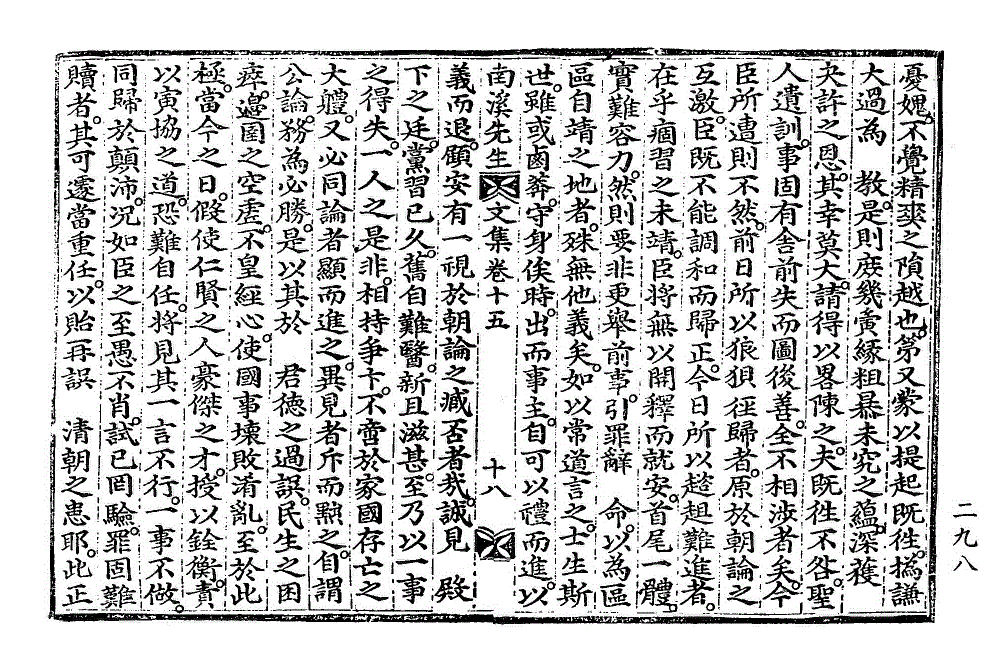 憂媿。不覺精爽之隕越也。第又蒙以提起既徃。撝謙
大過爲　教。是則庶幾夤緣粗暴未究之蘊。深獲
夬許之恩。其幸莫大。請得以畧陳之。夫既徃不咎。聖
人遺訓。事固有舍前失而圖後善。全不相涉者矣。今
臣所遭則不然。前日所以狼狽徑歸者。原於朝論之
互激。臣既不能調和而歸正。今日所以趑趄難進者。
在乎痼習之未靖。臣將無以開釋而就安。首尾一體。
實難容力。然則要非更擧前事。引罪辭　命。以爲區
區自靖之地者。殊無他義矣。如以常道言之。士生斯
世。雖或鹵莽。守身俟時。出而事主。自可以禮而進。以
南溪先生文集卷十五　十八
義而退。顧安有一視於朝論之臧否者哉。誠見　殿
下之廷。黨習已久。舊自難醫。新且滋甚。至乃以一事
之得失。一人之是非。相持爭卞。不啻於家國存亡之
大軆。又必同論者顯而進之。異見者斥而黜之。自謂
公論。務爲必勝。是以其於　君德之過誤。民生之困
瘁。邊圉之空虛。不皇經心。使國事壞敗淆亂。至於此
極。當今之日。假使仁賢之人豪傑之才。授以銓衡。責
以寅協之道。恐難自任。將見其一言不行。一事不做。
同歸於顚沛。況如臣之至愚不肖。試已罔驗。罪固難
贖者。其可遽當重任。以貽再誤　清朝之患耶。此正
二九八